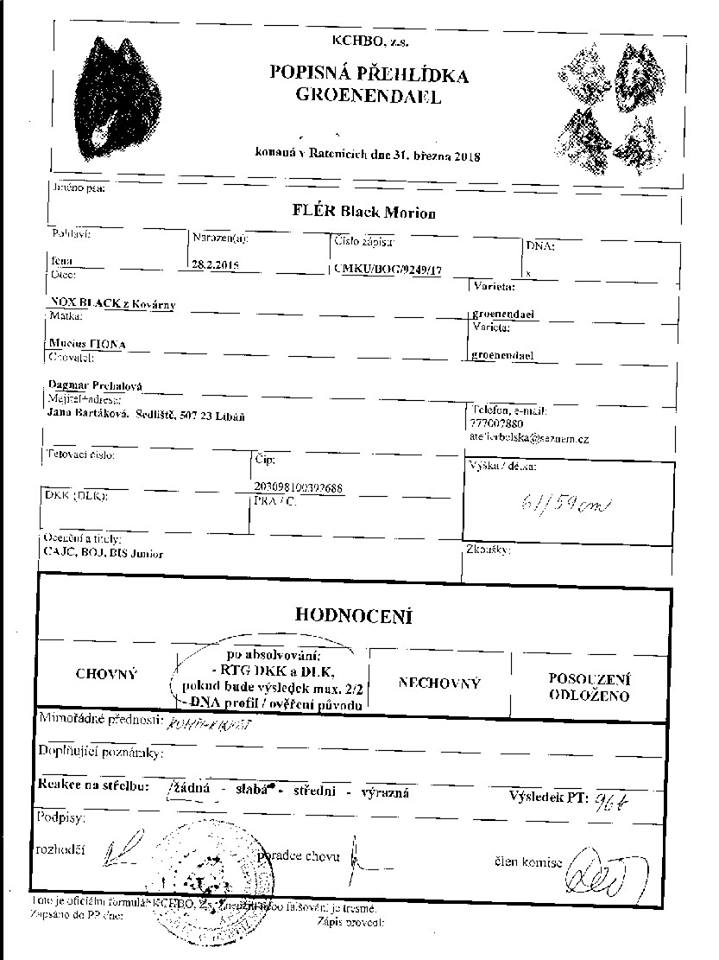 KCHBO, z.s.
POPISNÁ PŘEHLÍDKA
GROENENDAEL
konaná v Ratenicích dne 31. března 2018
Jméno psa:
FLÉR Black Morion
Pohlaví:
fena
Narozen(a):
28.2.2015
Číslo zápisu:
CMKU/BOG/9249/17
DNA:
x
Otec:
NOX BLACK z Kovárny
Varieta:
groenendael
Matka:
Mucius FIONA
Varieta:
groenendael
Chovatel:
Dagmar Prchalová
Majitel+adresa:
Jana Bartáková, Sedliště, 507 23 Libáň
Telefon, e-mail:
777002880
@seznam.cz
Tetovací číslo:
Čip:
203098100392688
Výška / délka:
61/59cm
DKK (DLK):
PRA / C:
Ocenění a tituly:
CAJC, BOJ, BIS Junior
Zkoušky:
HODNOCENÍ
CHOVNÝ
po absolvování:
- RTG DKK a DLK,
pokud bude výsledek max. 2/2
- DNA profil / ověření původu
NECHOVNÝ
POSOUZENÍ
ODLOŽENO
Mimořádné přednosti:
Doplňující poznámky:
Reakce na střelbu: žádná - slabá - střední - výrazná
Výsledek PT:
Podpisy:
rozhodčí
poradce chovu
člen komise
Toto je oficiální formulář KCHBO, z.s. Zneužití nebo falšování je trestné.
Zapsáno do PP dne:
Zápis provedl: